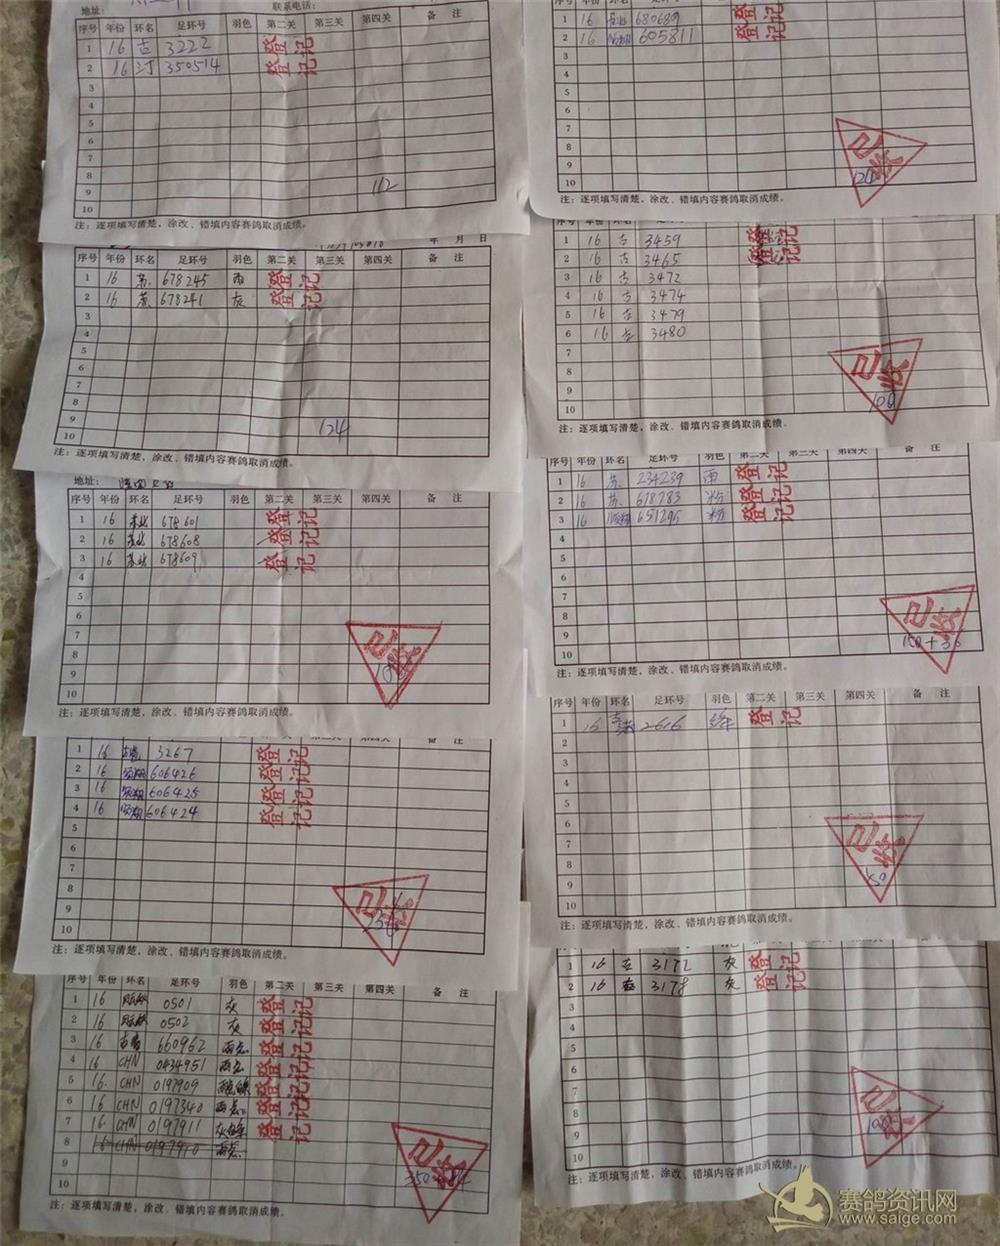 地址:
联系电话:
序号 年份 环名 足环号 羽色 第二关 第三关 第四关 备 注
1 16 古 3222 登记
2 16 河 350514 登记
3
4
5
6
7
8
9 112
10
注: 逐项填写清楚, 涂改、错填内容赛鸽取消成绩。
年 月 日
序号 年份 环名 足环号 羽色 第二关 第三关 第四关 备 注
1 16 苏 678245 雨 登记
2 16 苏 678241 灰 登记
3
4
5
6
7
8
9 124
10
注: 逐项填写清楚, 涂改、错填内容赛鸽取消成绩。
地址:
序号 年份 环名 足环号 羽色 第二关 第三关 第四关 备 注
1 16 678601 登记
2 16 678608 登记
3 16 678609 登记
4
5
6
7
8 已收
9
10
注: 逐项填写清楚, 涂改、错填内容赛鸽取消成绩。
1 16 3267 登记
2 16 606426 登记
3 16 606425 登记
4 16 606424 登记
5
6
7
8
9 已收
10
注: 逐项填写清楚, 涂改、错填内容赛鸽取消成绩。
序号 年份 环名 足环号 羽色 第二关 第三关 第四关 备 注
1 16 0501 灰 登记
2 16 0502 灰 登记
3 16 660962 雨点 登记
4 16 CHN 0434951 雨点 登记
5 16 CHN 0197909 登记
6 16 CHN 0197340 雨点 登记
7 16 CHN 0197911 登记
8 16 CHN 0197910 雨点 已收
9
10
注: 逐项填写清楚, 涂改、错填内容赛鸽取消成绩。
1 16 680689 登记
2 16 605811 登记
3
4
5
6
7
8 已收
9
10 124
注: 逐项填写清楚, 涂改、错填内容赛鸽取消成绩。
序号 年份 环名 足环号
1 16 古 3459 登记
2 16 古 3465 登记
3 16 古 3472
4 16 古 3474
5 16 古 3479
6 16 古 3480
7
8 已收
9
10
注: 逐项填写清楚, 涂改、错填内容赛鸽取消成绩。
序号 年份 环名 足环号 羽色 第二关 第三关 第四关 备 注
1 16 苏 234239 雨 登记
2 16 苏 678783 粉 登记
3 16 651295 粉 登记
4
5
6
7
8
9 已收
10 150+36
注: 逐项填写清楚, 涂改、错填内容赛鸽取消成绩。
序号 年份 环名 足环号 羽色 第二关 第三关 第四关 备 注
1 16 2616 绛 登记
2
3
4
5
6
7 已收
8
9 50
10
注: 逐项填写清楚, 涂改、错填内容赛鸽取消成绩。
1 16 古 3172 灰 登记
2 16 古 3178 灰 登记
3
4
5
6
7
8 已收
9 100
10
注: 逐项填写清楚, 涂改、错填内容赛鸽取消成绩。
赛鸽资讯网
www.saige.com